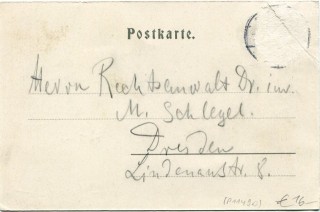 Postkarte.
Herrn Rechtsanwalt Dr. iur.
M. Schlegel.
Dresden
Lindenaustr. 8.
€ 16-